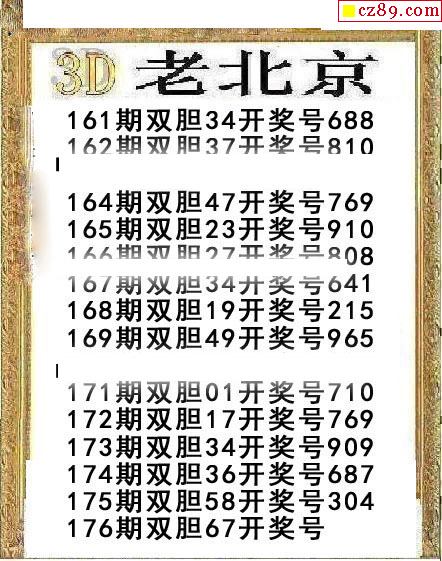 cz89.com
3D 老北京
161期双胆34开奖号688
162期双胆37开奖号810
164期双胆47开奖号769
165期双胆23开奖号910
166期双胆27开奖号808
167期双胆34开奖号641
168期双胆19开奖号215
169期双胆49开奖号965
171期双胆01开奖号710
172期双胆17开奖号769
173期双胆34开奖号909
174期双胆36开奖号687
175期双胆58开奖号304
176期双胆67开奖号